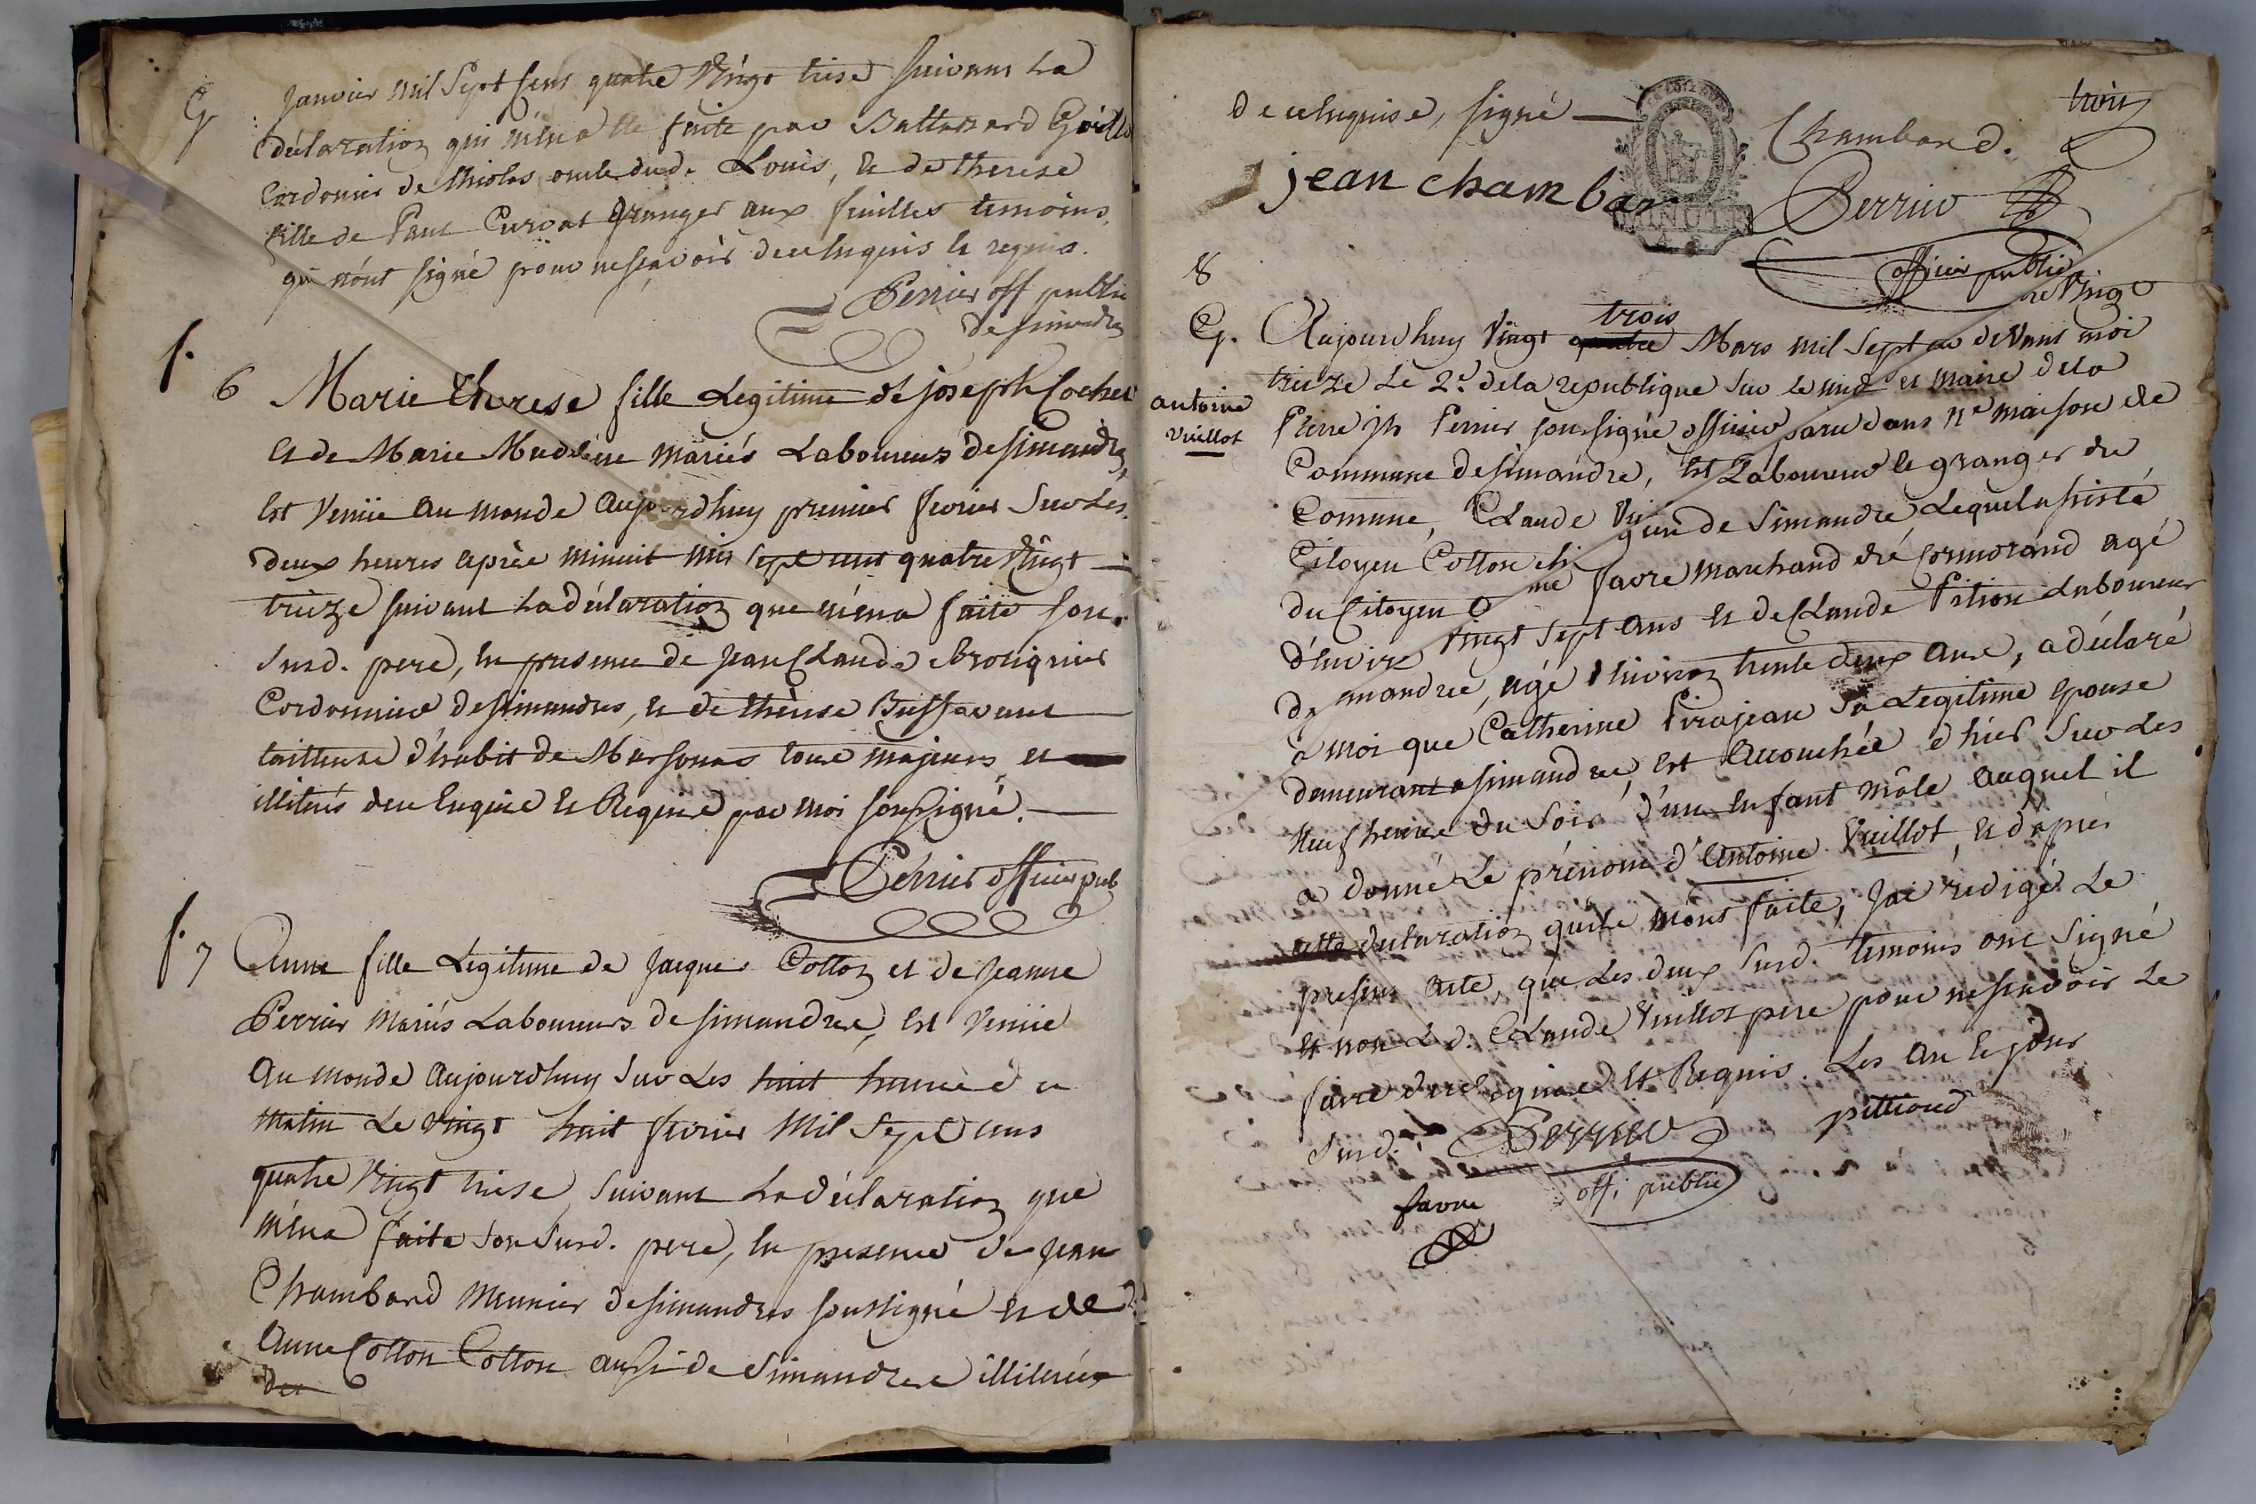 G
Janvier mil Sept Cens quatre Vingt treise suivant La
déclaration qui m'en a été faite par Baltazard
Cordonier de oncle dud. Louis, & de therese
fille de Paul Curvat Granger aux feuilles temoins
qui n'ont signé pour ne sçavoir de ce enquis & requis.
Perrier off public
de simandre
f.
6 Marie therese fille Legitime de joseph Cochet
& de Marie Madeleine mariés Laboureurs de simandre,
Est Venüe au monde aujourdhuy premier fevrier Sur Les
deux heures après minuit mil sept cent quatre Vingt
treize suivant La déclaration que m'en a faite son
Susd. pere, en presence de jean Claude
Cordonnier de simandres, & de thèrese Buffavant
tailleuse d'habit de Marsonas tous majeurs et
illiterés de ce Enquis & Requis par moi soussigné.
Perrier officier pub
f.
7 Anne fille Legitime de jacques Cotton et de jeanne
Perrier Mariés Laboureurs de simandre, Est Venüe
au monde aujourdhuy Sur Les huit heures du
matin Le Vingt huit fevrier Mil Sept Cens
quatre Vingt treise, Suivant La déclaration que
m'en a faite Son Susd. pere, en presence de jean
Chambard Meunier de simandres soussigné & de
Anne Cotton Cotton aussi de Simandre illiterée
de
trois
de ce enquise, signé
Chambard.
jean chambar
MINUTE
Perrier
officier public
8
G. Aujourdhuy Vingt quatre trois Mars mil Sept cen Vingt
treize Le 2d. de la republique Sur le midi devant moi
antoine
Vuillot
Pierre jh Perrier soussigné officier et Maire de la
Commune de simandre, Est paru dans maison de
Comune, Claude Laboureur & granger du
Citoyen Cotton de Simandre Lequel assisté
du Citoyen favre marchand de Cormorand agé
d'environ Vingt sept ans & de Claude Pition Laboureur
de simandre, agé d'environ trente deux ans, a déclaré
a moi que Catherine Pirajean Sa Legitime epouse
demeurant a simandre, est accouchée d'hier Sur Les
Neuf heures du Soir d'un enfant mâle auquel il
a donné Le prénom d'Antoine Vuillot, & d'après
cette declaration qu'ils m'ont faite, J'ai rédigé Le
present acte, que Les deux susd. temoins ont Signé
et non Led. Claude Vuillot pere pour ne sçavoir Le
faire de ce Enquis et Requis. Les an & jour
susd.
Perrier
off. public
pittiond
favre